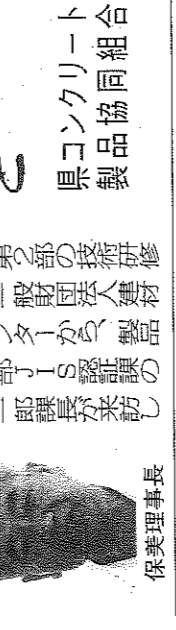 県コンクリート
製品協同組合
第2部の技術研修
一般財団法人建材
ンターから、製品
部JIS認証課の
一郎課長が来訪し
保美理事長